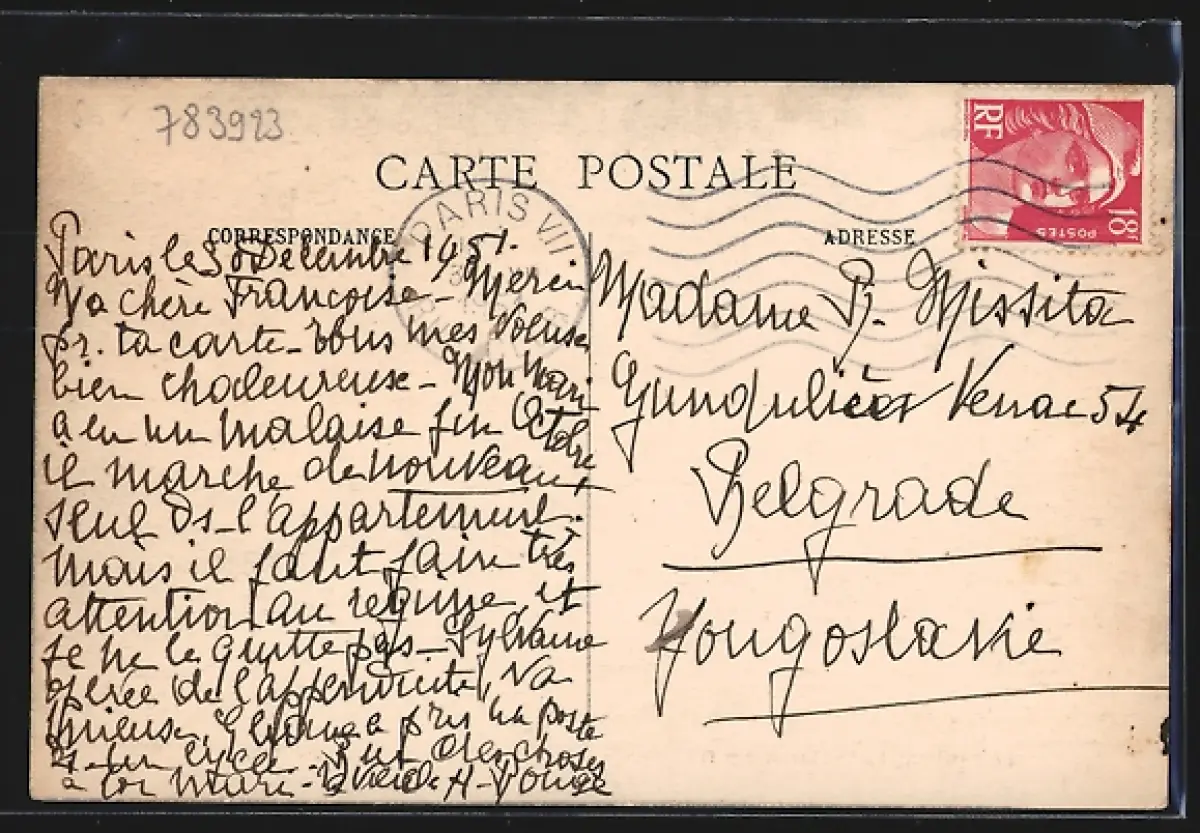 783923
CARTE POSTALE
CORRESPONDANCE
ADRESSE
PARIS VII
RF
18F
POSTES
Paris le 30 Décembre 1951.
Ma chère Françoise - Merci
pr. ta carte - tous mes voeux
bien chaleureuse - Mon Mari
a eu un malaise fin Octobre
il marche de nouveau,
seul ds - l'appartement.
Mais il faut faire très
attention au régime et
je ne le quitte pas - Sylviane
opérée de l'appendicite, va
mieux, a pris un poste
un lycée - choses
à ton mari -
Madame P. Missita
Gundulićev Venac 54
Belgrade
Yougoslavie